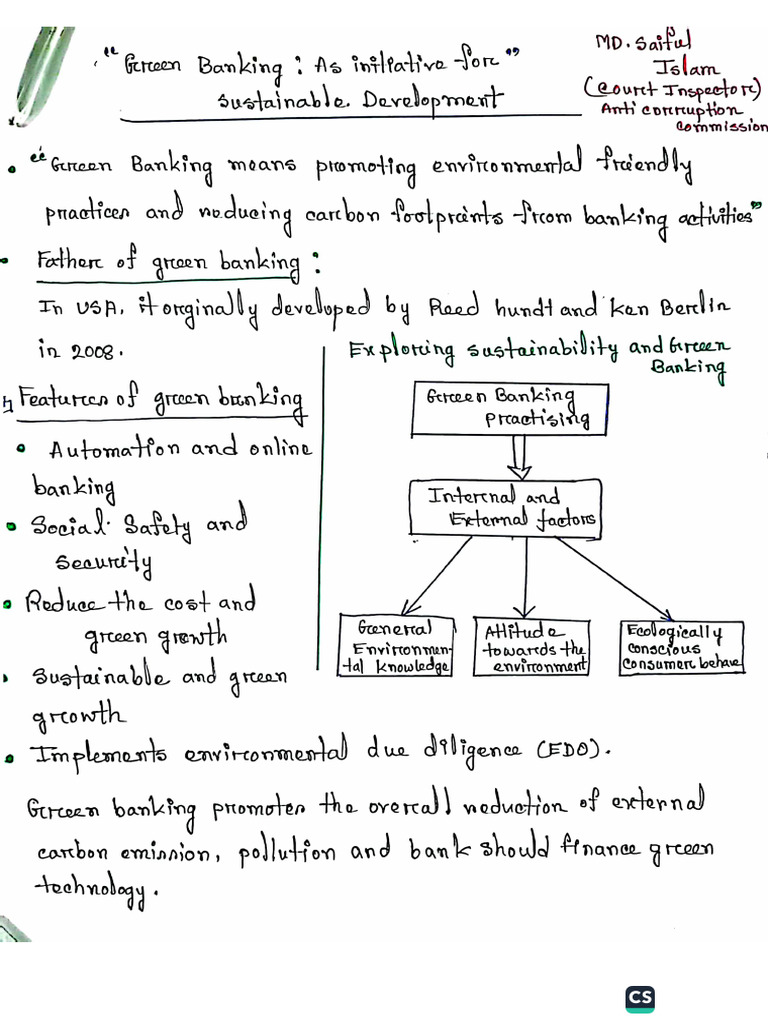 "Green Banking: As initiative for"
Sustainable Development
MD. Saiful
Islam
(Court Inspector)
Anti corruption
commission
"Green Banking means promoting environmental friendly
practices and reducing carbon footprints from banking activities"
Father of green banking:
In USA, it orginally developed by Reed hundt and Ken Berlin
in 2008.
Features of green banking
Automation and online
banking
Social Safety and
security
Reduce the cost and
green growth
Sustainable and green
growth
Exploring sustainability and Green
Banking
Green Banking
Practising
Internal and
External factors
General
Environmen-
tal knowledge
Attitude
towards the
environment
Ecologically
conscious
consumers behave
Implements environmental due diligence (EDD).
Green banking promotes the overall reduction of external
carbon emission, pollution and bank should finance green
technology.
CS